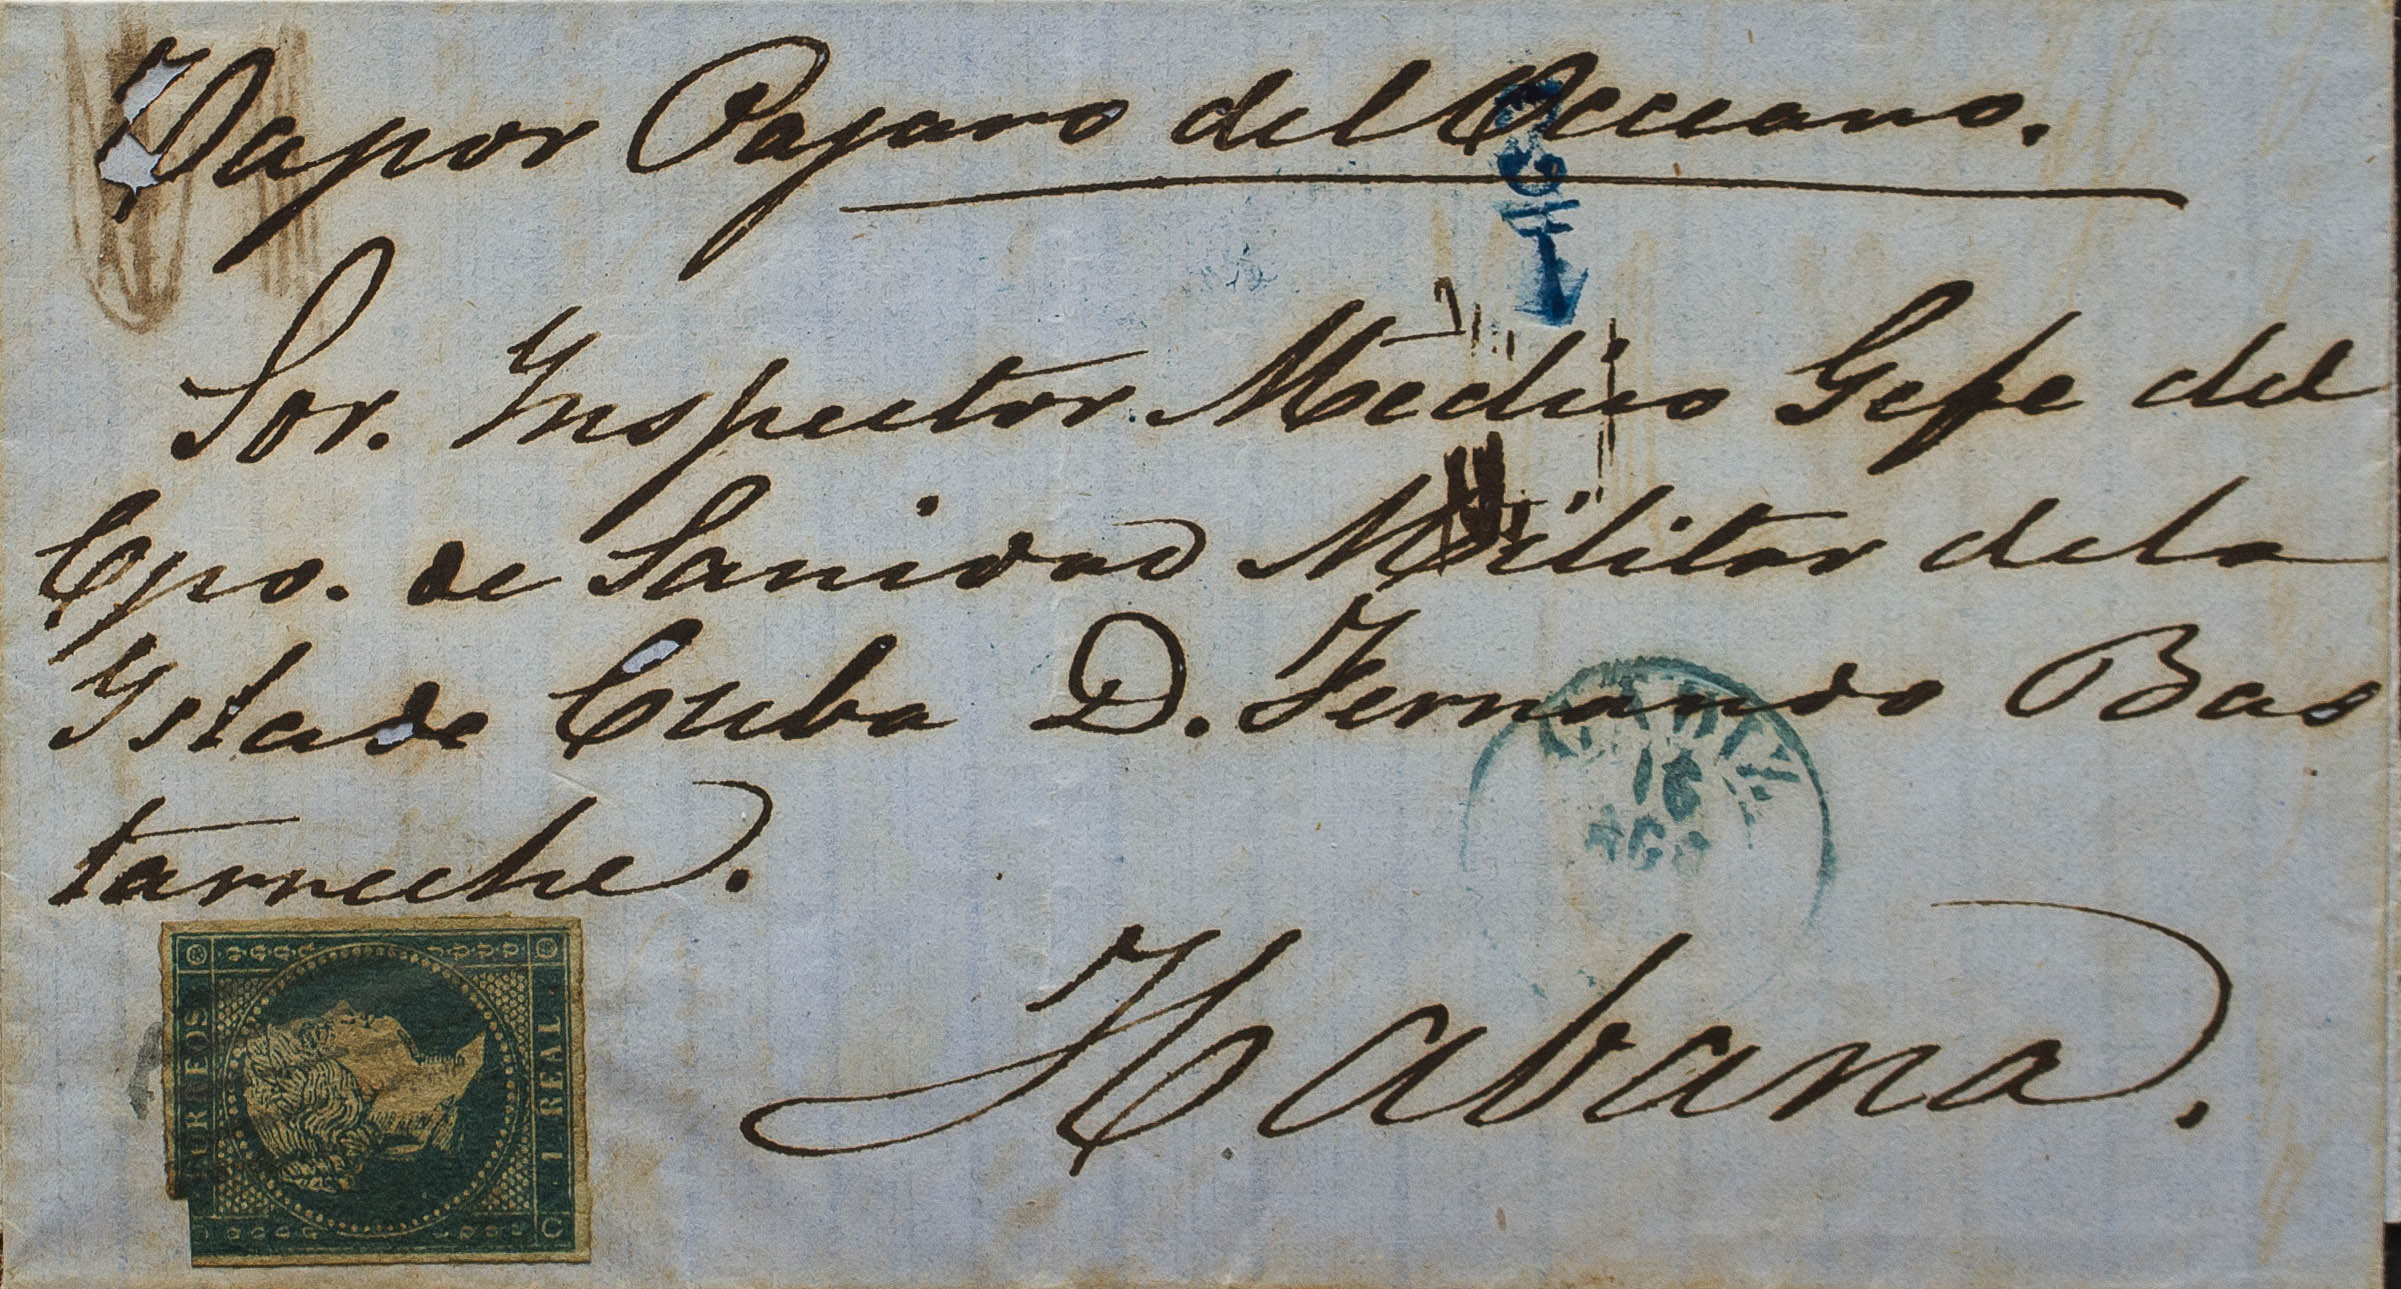 Vapor Pajaro del Occeano.
Sor. Ynspector Medico Gefe del
Cpo. de Sanidad Militar de la
Ysla de Cuba D. Fernando Bas
tarreche.
Habana.
CADIZ
16
AGO
CORREOS
1 REAL